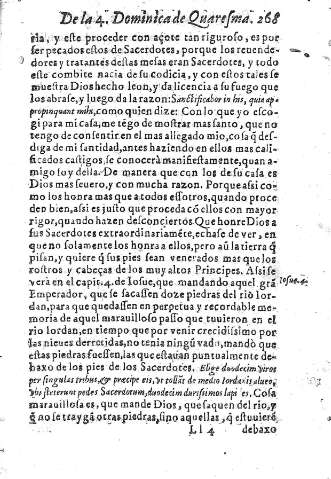 De la 4. Dominica de Quaresma. 268
ria, y este proceder con açote tan riguroso, es por
ser pecados estos de Sacerdotes, porque los reuende-
dores y tratantes destas mesas eran Sacerdotes, y todo
este combite nacia de su codicia, y con estos tales se
muestra Dios hecho leon, y da licencia a su fuego que
los abrase, y luego da la razon: Sanctificabor in his, quia ap-
propinquant mihi, como quien dize: Con lo que yo esco-
gi para mi casa, me tẽgo de mostrar mas santo, que no
tengo de consentir en el mas allegado mio, cosa q̃ des-
diga de mi santidad, antes haziendo en ellos mas cali-
ficados castigos, se conocerà manifiestamente, quan a-
migo soy della. De manera que con los de su casa es
Dios mas seuero, y con mucha razon. Porque assi co-
mo los honra mas que a todos essotros, quando proce
den bien, assi es justo que proceda cõ ellos con mayor
rigor, quando hazen desconciertos. Que honre Dios a
sus Sacerdotes extraordinariamẽte, echase de ver, en
que no solamente los honra a ellos, pero aũ la tierra q̃
pisan, y quiere q̃ sus pies sean venerados mas que los
rostros y cabeças de los muy altos Principes. Assi se
verà en el capit. 4. de Iosue, que mandando aquel grã
Iosue. 4.
Emperador, que se sacassen doze piedras del rio Ior-
dan, para que quedassen en perpetua y recordable me-
moria de aquel marauilloso passo que tuuieron en el
rio Iordan, en tiempo que por venir crecidissimo por
las nieues derretidas, no tenia ningũ vado, mandò que
estas piedras fuessen, las que estauan puntualmente de-
baxo de los pies de los Sacerdotes. Elige duodecim viros
per singulas tribus, & præcipe eis, vt tollãt de medio Iordanis alueo,
vbi steterunt pedes Sacerdotum, duodecim durissimos lapides. Cosa
marauillosa es, que mande Dios, que saquen del rio, y
q̃ no se traygã otras piedras, sino aquellas, q̃ estuuierõ
Ll 4 debaxo